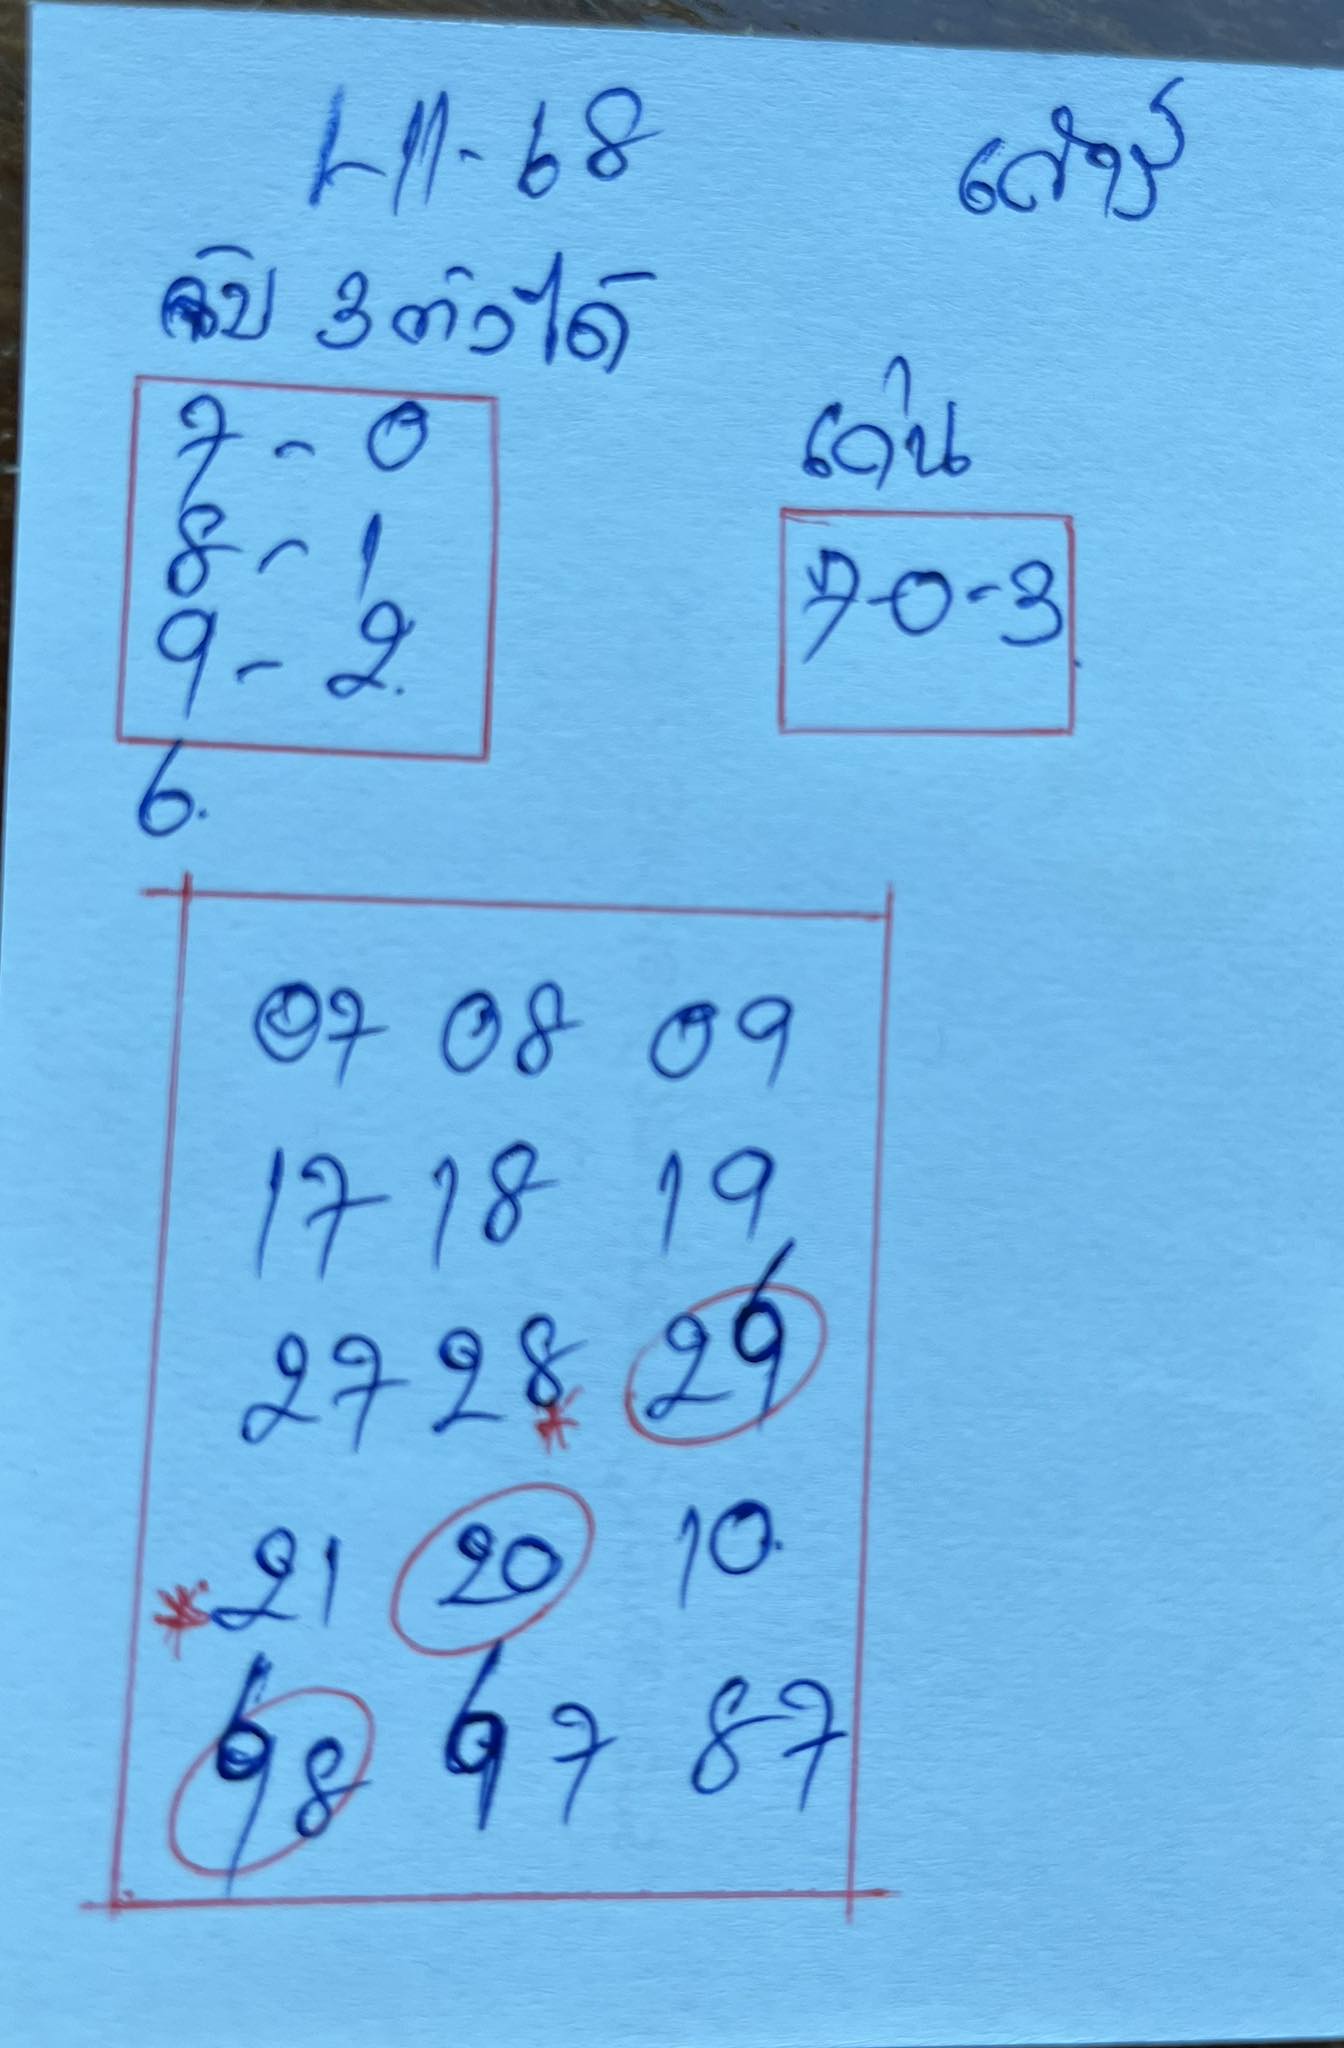 1-11-68
เสาร์
จับ 3 ตัวได้
7 - 0
8 - 1
9 - 2.
6.
เด่น
7-0-3
07 08 09
17 18 19
27 28 29
21 20 10.
98 97 87